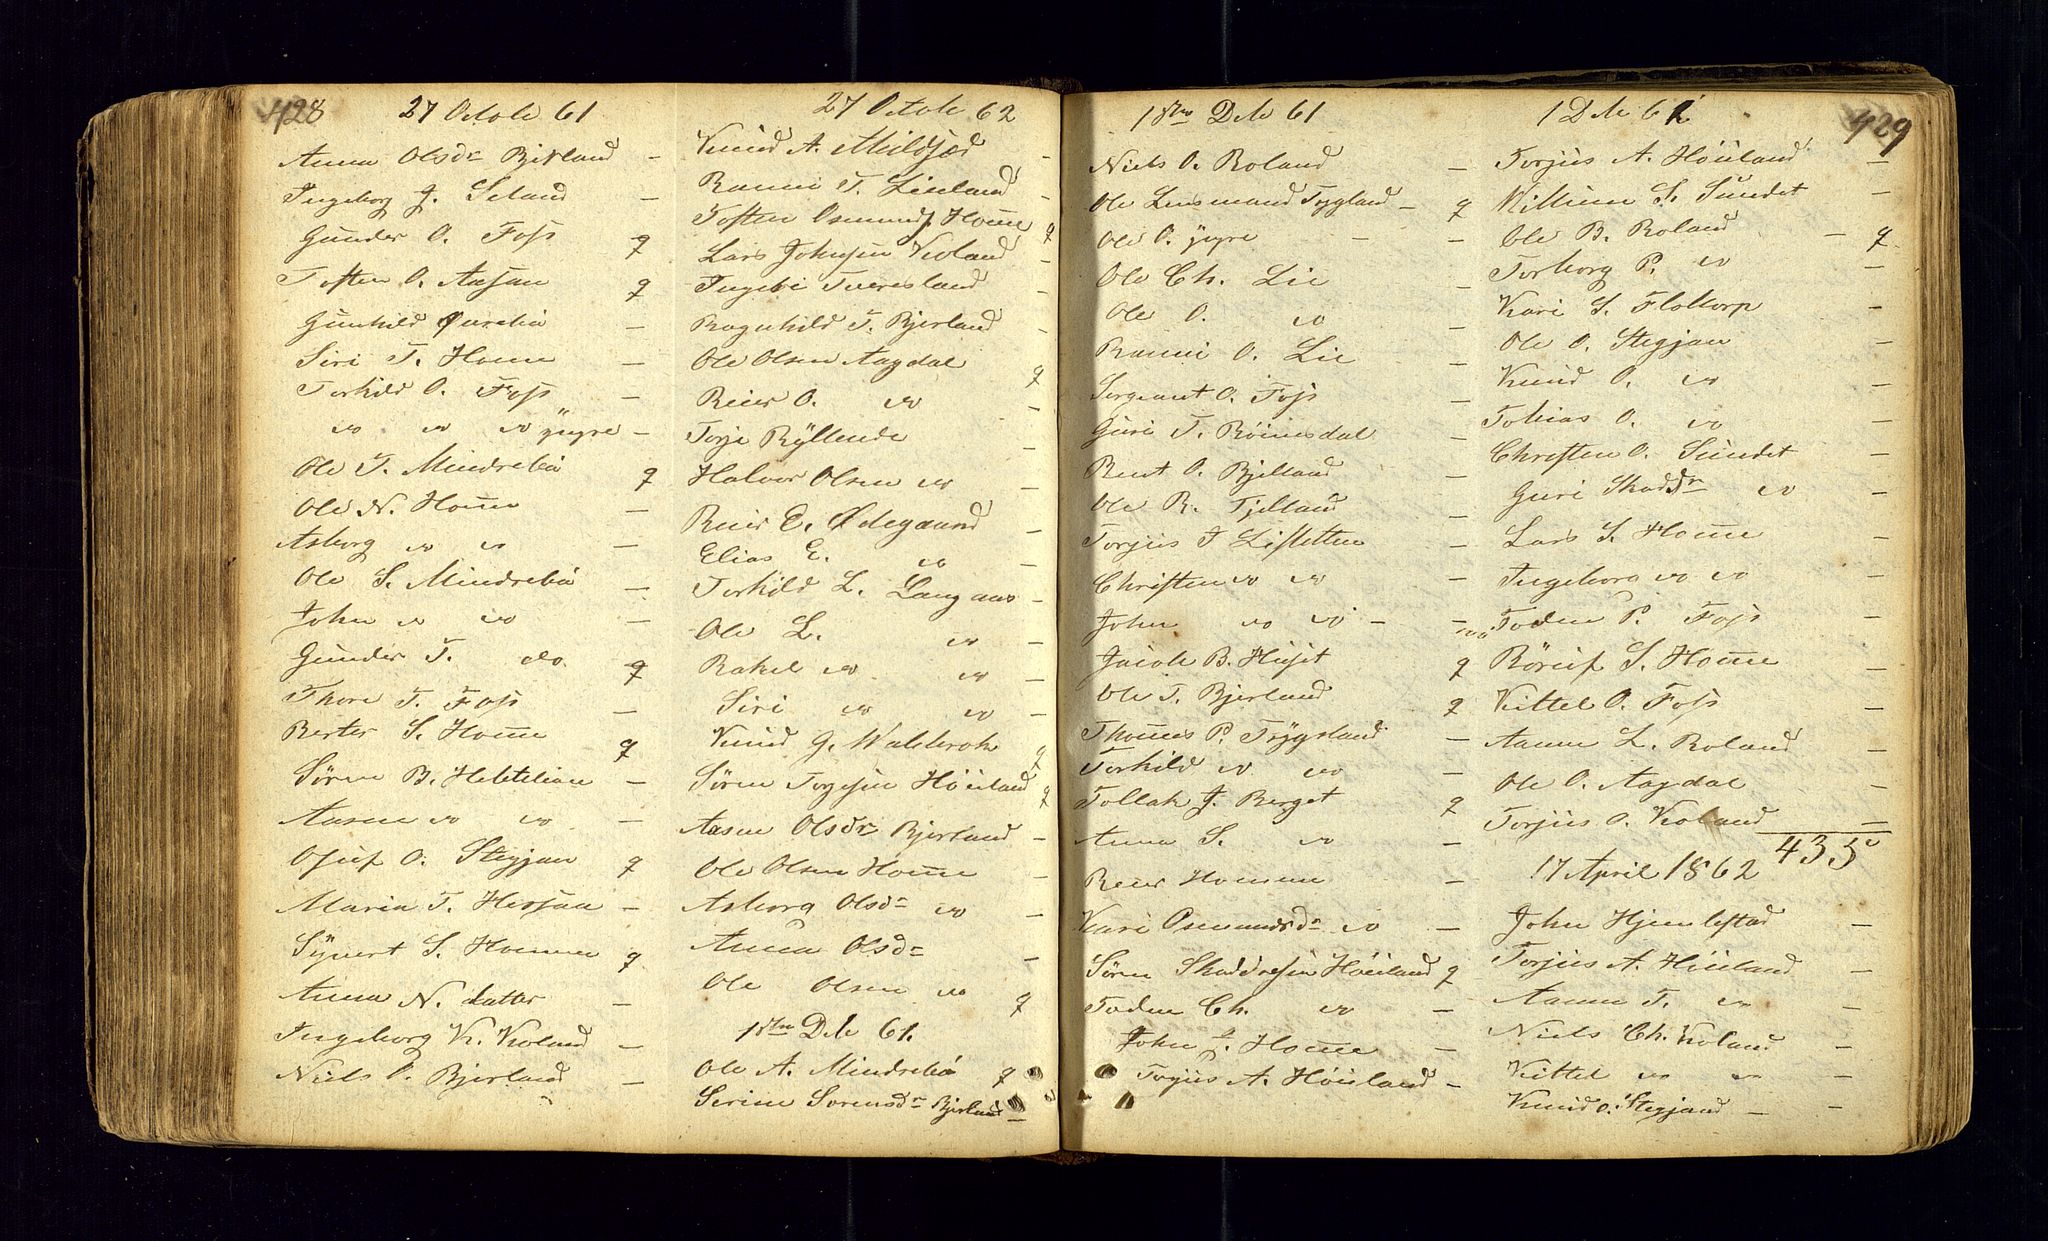 428
27 Octobe 61
Anna Olsdr Bjerland -
Ingeborg J. Seland -
Gunder O. Foss g
Tosten O. Aasan g
Gunhild Øurebø -
Siri T. Homme -
Torkild O. Foss -
do do do yngre -
Ole T. Mindrebø g
Ole N. Home -
Asborg do do -
Ole S. Mindrebø -
John do do -
Gunder T. do. g
Thore T. Foss -
Berter S. Home g
Søren B. Hebtelian -
Aasne do do -
Osuf O. Stegjan g
Maria T. Hessaa -
Syvert S. Homme g
Anna N. datter -
Ingeborg K. Kvoland -
Niels O. Bjerland -
27 Octobe 62
Knud A. -
Ranni T. Lieland -
Tosten Osmunds. Home g
Lars Johnsen Kvoland -
Ingebi Tveresland -
Ragnhild T. Bjerland -
Ole Olsen Aagdal g
Reier O. do -
Torje Kyllende
Halvor Olsen do -
Reier E. Ødegaard -
Elias E. do -
Torkild L. Langaas -
Ole L. do -
Rakel do do -
Siri do do -
Knud G. Waleberok g
Søren Torjesen Høiland g
Aasne Olsdr Bjerland -
Ole Olsen Home -
Asborg Olsdr do -
Anna Olsdr -
Ole Olsen do g
1ste Dcb 61.
Ole A. Mindrebø g
Serine Sorensdr Bjerland -
1ste Dcb 61
Niels O. Roland -
Ole Lensmand Tryland - g
Ole O. yngre - -
Ole Ch. Lie -
Ole O. do -
Ranni O. Lie -
Sergeant O. Foss -
Guri T. Røinesdal -
Bent O. Bjelland -
Ole R. Fjelland -
Torjus J Lisletten -
Christen do do -
John do do - -
Jacob B. Huset g
Ole T. Bjerland g
Thomes P. Trygsland -
Torkild do do -
Tollak J. Berget g
Anna S. do -
Reier Homme -
Kari Osmundsdr do -
Søren Høiland g
Toden Ch. do -
John J. Home -
Torjus A. Høiland -
1 Dcb 61
429
Torjus A. Høiland -
Willum S. Sundet -
Ole B. Roland - g
Torborg P. do -
Kari S. Flottorp -
Ole O. Stegjan -
Knud O. do -
Tobias O. do -
Christen O. Sundet -
Guri do -
Lars S. Home -
Ingeborg do do -
Toden P. Foss
Rørik S. Home -
Kittel O. Foss -
Aanne L. Roland -
Ole O. Aagdal -
Torjus O. Kvoland -
435
17 April 1862
John Hjemlestad -
Torjus A. Høiland -
Aanne T. do -
Niels Ch. Kvoland -
Kittel do do -
Knud O. Stegjand - -